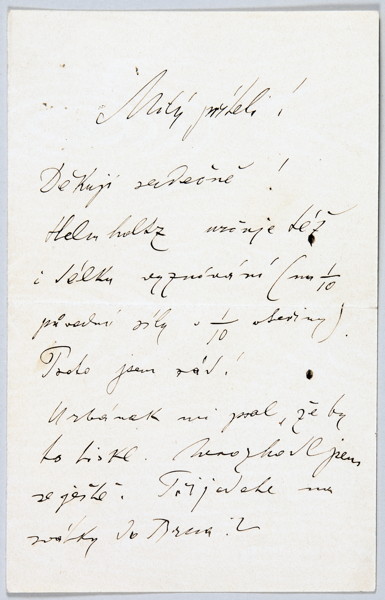 Milý příteli!
Děkuji srdečně!
Helmholtz určuje též
i délku vyznívání (na 1/10
původní síly o 1/10 vteřiny).
Proto jsem rád!
Urbánek mi psal, že by
to tiskl. Nerozhodl jsem
se ještě. Přijedete na
svátky do Brna?